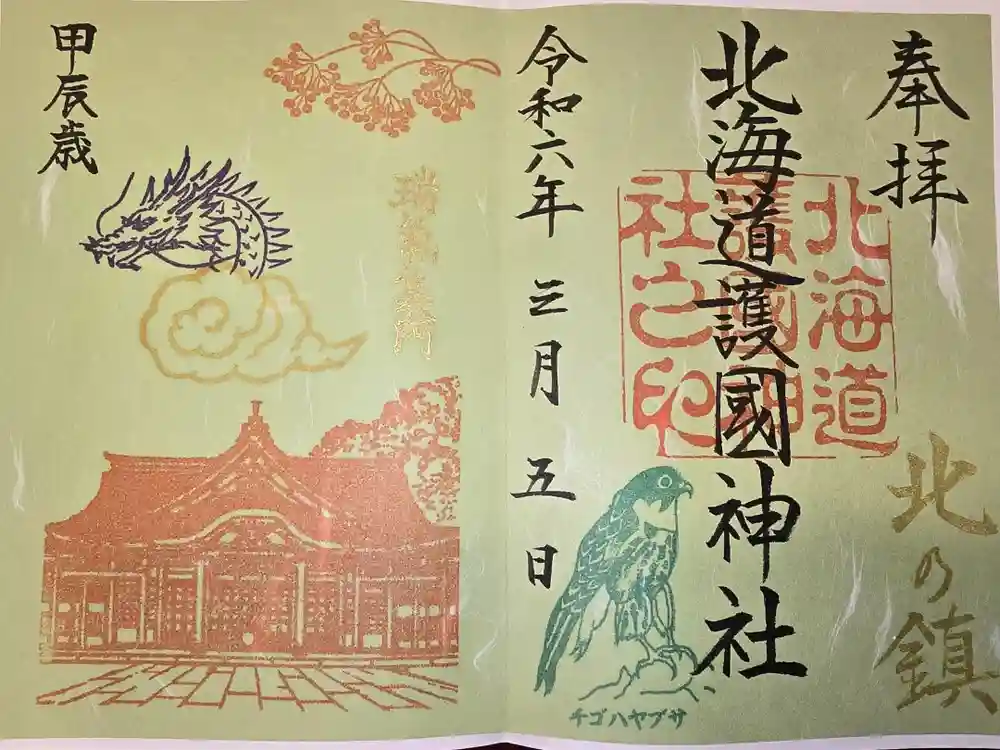 奉拝
北の鎮
北海道護國神社
北海道
護國神
社之印
チゴハヤブサ
令和六年三月五日
甲辰歳